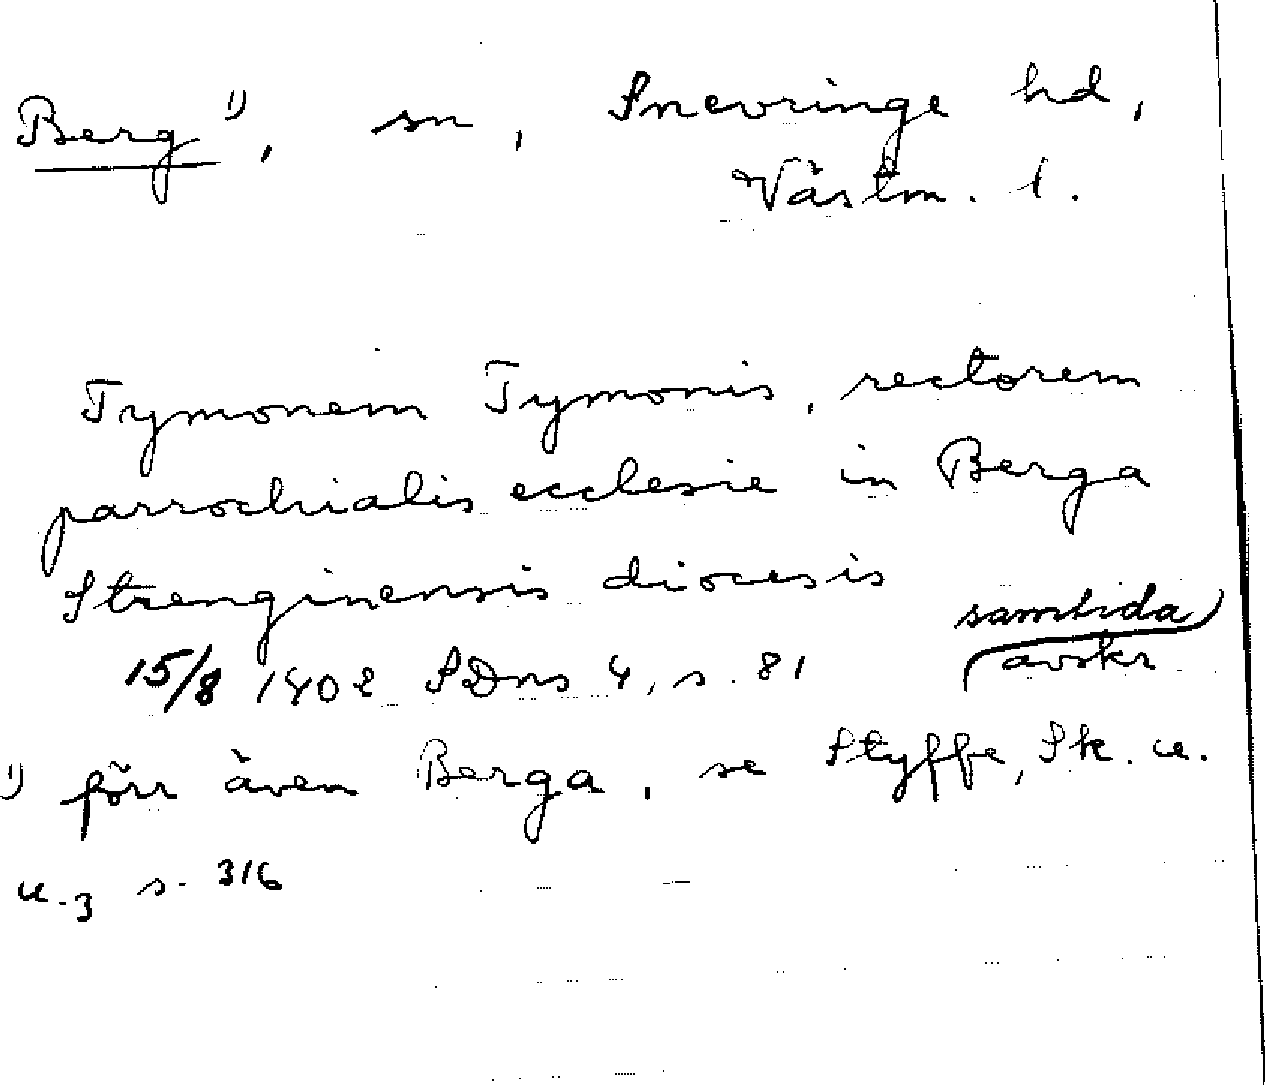 Berg 1), sn, Snevringe hd,
Västm. l.
Tymonem Tymonis, rectorem
parrochialis ecclesie in Berga
Strenginensis diocesis
samtida
15/8 1402 SDns 4, s. 81 avskr
1) förr även Berga, se Styffe, Sk. u.
u. 3 s. 316